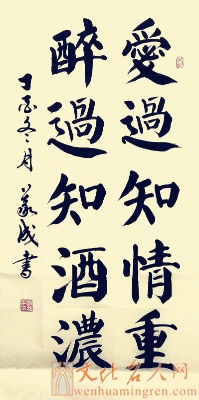 愛過知情重
醉過知酒濃
丁酉冬月 義成書
文化名人网
wenhuamingren.com